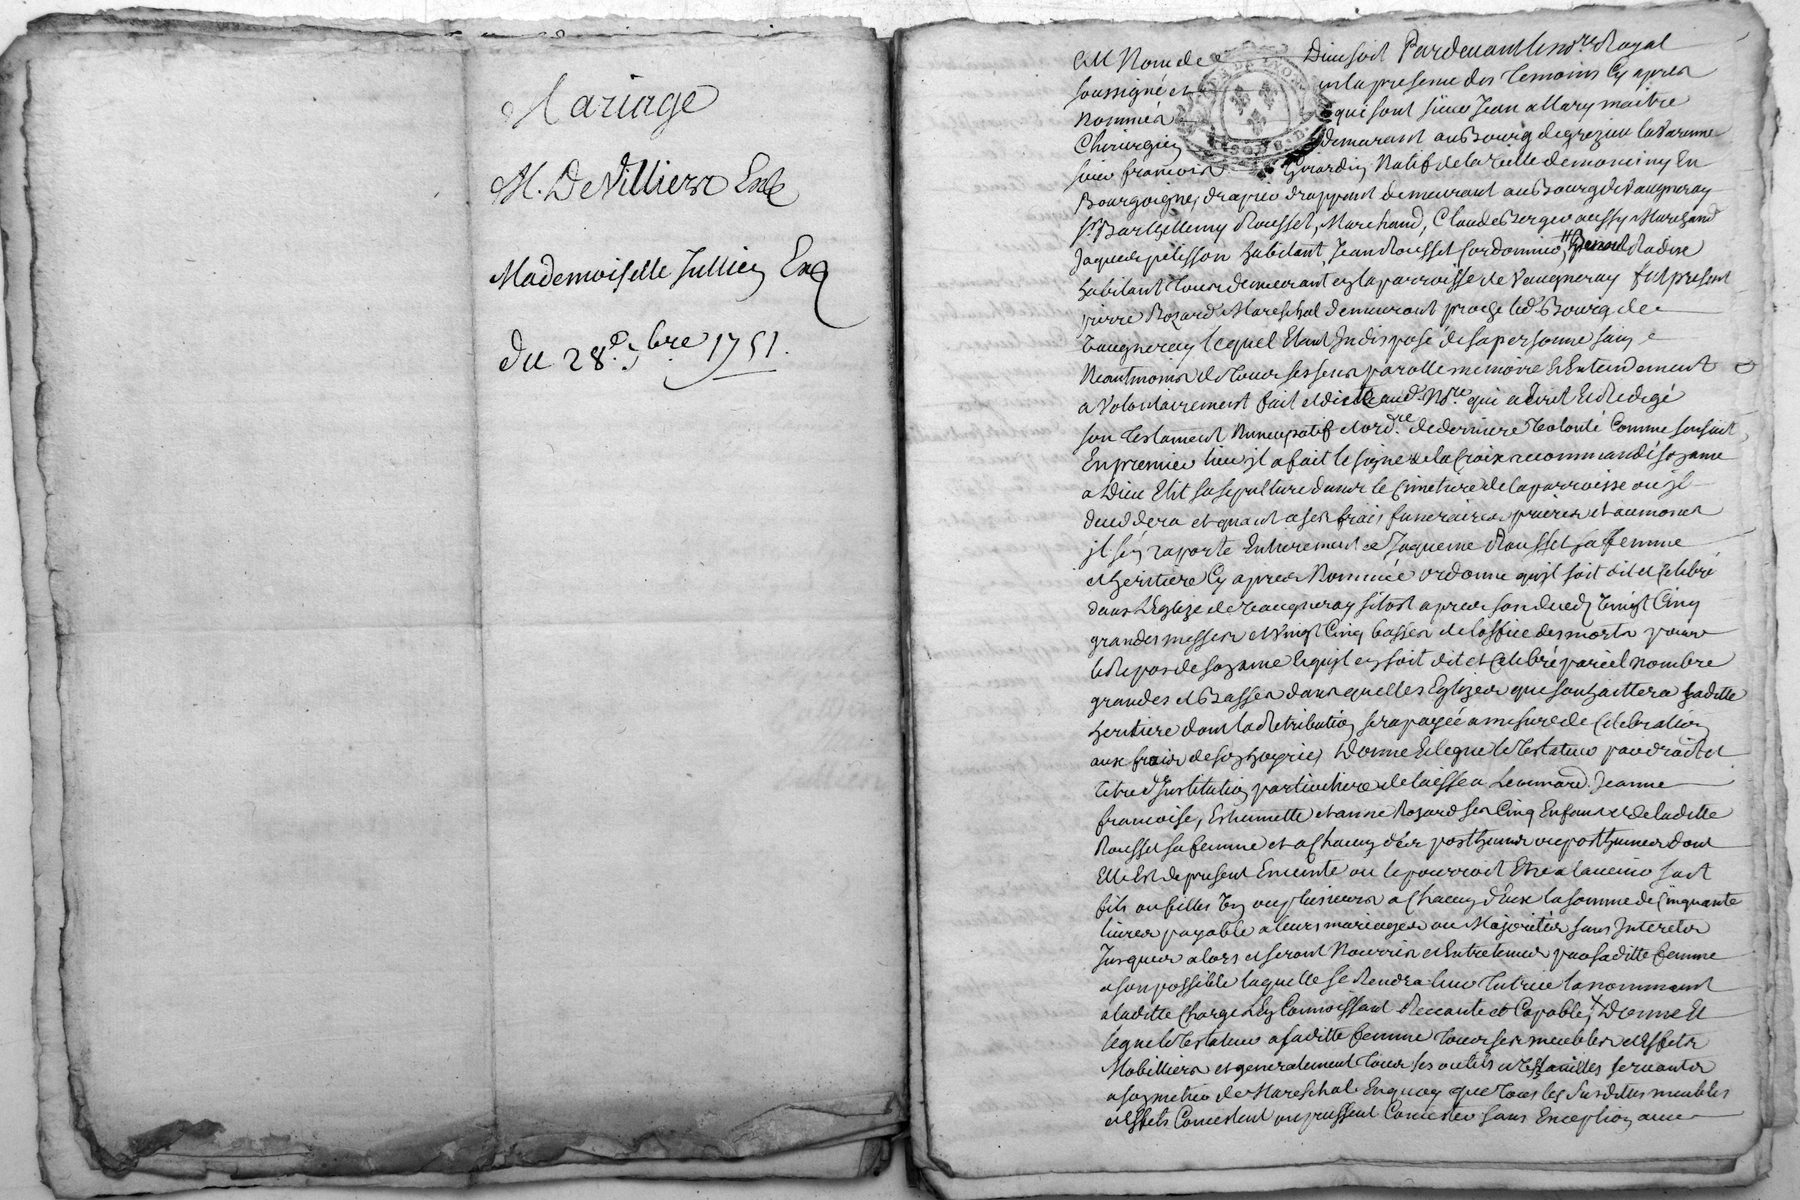 Mariage
M. DeVilliers Exp
Mademoiselle Jullien Exp
du 28e 9bre 1751.
Au Nom de Dieu soit Pardevant le nore Royal
soussigné et en la presense des temoins cy apres
nommés qui sont sieur Jean allary maitre
Chirurgien demeurant au Bourg de grezieu la Varenne
sieur françois Girardin Natif de la Ville de en
Bourgoigne, drapier drappant demeurant au Bourg de Vaugneray
sr Barthellemy Rousset, Marchand, Claude Berger aussy Marchand
Jaques pelisson habitant, Jean Rousset Cordonnier, Benoit
habitant tous demeurant en la parroisse de Vaugneray fut present
pierre Rozard Mareschal demeurant proche led. Bourg de
Vaugneray lequel Etant Indisposé de sa personne sain
Neantmoins de tous ses sens parolle memoire et Entendement
a Volontairement fait et dicté aud. Nore qui a Ecrit et Redigé
son testament Nuncupatif et ordre de derniere Volonté Comme sensuit
En premier lieu il a fait le signe de la Croix recommandé son ame
a Dieu Elit sa sepulture dans le Cimetiere de la parroisse ou il
deceddera et quant a ses frais funeraires prieres et aumones
il s'en raporte Entierement a Jaqueme Rousset sa femme
et heritiere Cy apres Nommée ordonne qu'il soit dit et Celebré
dans L'Eglize de Vaugneray sitost apres son deced Vingt Cinq
grandes messes et Vingt Cinq basses de l'office des morts pour
le Repos de son ame et qu'il en soit dit et Celebré pareil nombre
grandes et Basses dans quelles Eglizes que souhaittera saditte
heritiere dont la Retribution sera payée a mesure de Celebration
aux frais de son hoyrie, Donne Et legue le Testateur par droit et
titre d'Institution particuliere delaisse a Jeanne
francoise, Estiennette et anne Rozard ses Cinq Enfants et de laditte
Rousset sa femme et a Chacun des posthumes ou posthumes dont
Elle Est de present Enceinte ou le pourroit Etre a lavenir soit
fils ou filles Un ou plusieurs a Chacun d'Eux la somme de Cinquante
livres payable a leurs mariages ou Majorités sans Interets
Jusques alors et seront Nourris et Entretenus par saditte femme
a son possible laquelle se Rendra leur tutrice la nommant
a laditte Charge L'En Connoissant Recçante et Capable, Donne Et
legue le Testateur a saditte femme tous ses meubles et Effets
Mobilliers et generalement tous ses outils et servants
a son metier de Mareschal En quoy que tous les susdittes meubles
et Effets Consistent ou pussent Consister sans Exception avec